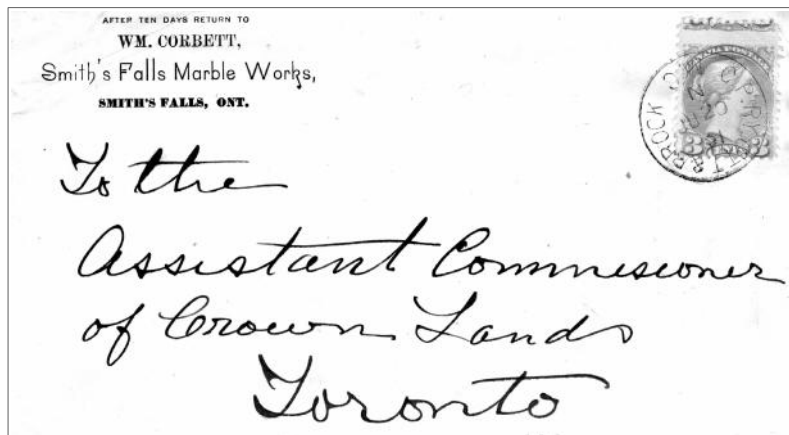 AFTER TEN DAYS RETURN TO
WM. CORBETT,
Smith's Falls Marble Works,
SMITH'S FALLS, ONT.
To the
Assistant Commissioner
of Crown Lands
Toronto